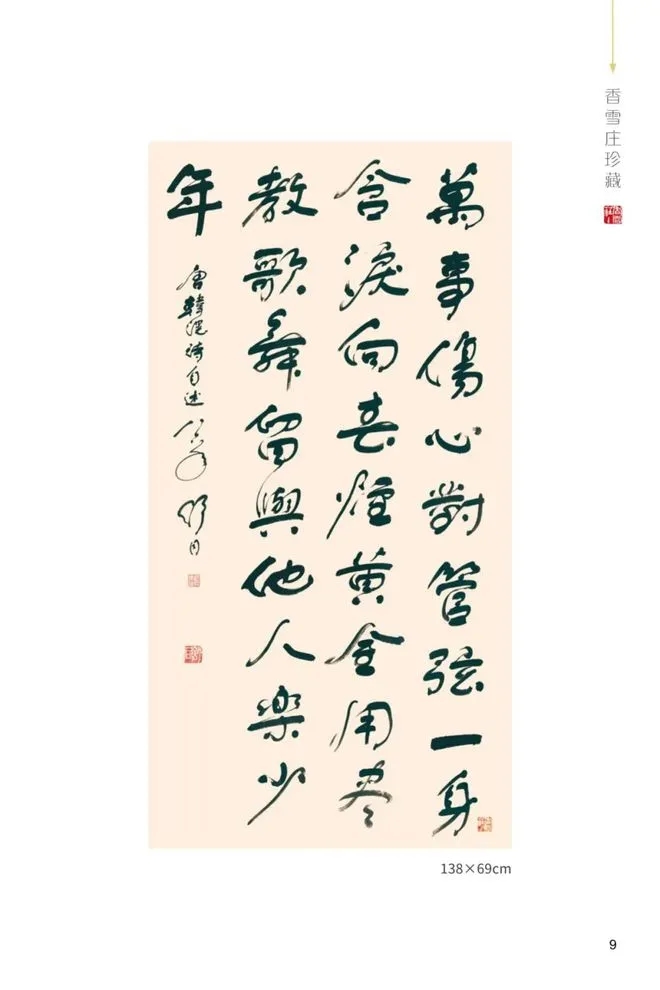 香雪庄珍藏
萬事傷心對管弦一身
含淚向春煙黃金用盡
教歌舞留與他人樂少
年
唐韓滉詩自述 舒同
138×69cm
9